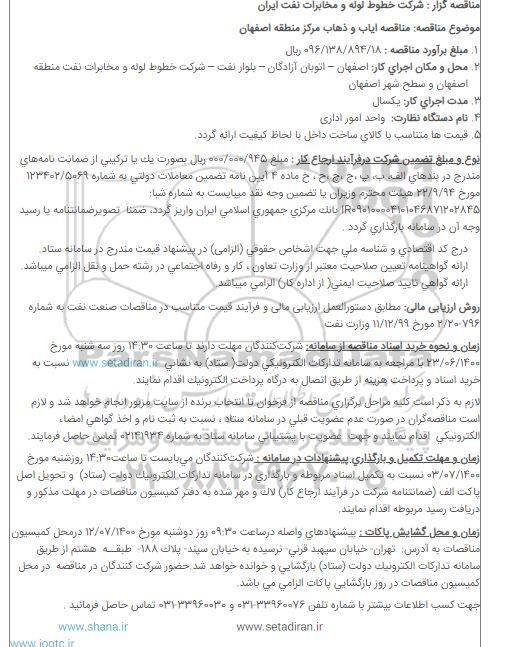 مناقصه گزار : شرکت خطوط لوله و مخابرات نفت ایران
موضوع مناقصه: مناقصه ایاب و ذهاب مرکز منطقه اصفهان
۱. مبلغ برآورد مناقصه : ۰۹۶/۱۳۸/۸۹۴/۱۸ ریال
۲. محل و مکان اجراي کار: اصفهان – اتوبان آزادگان – بلوار نفت – شرکت خطوط لوله و مخابرات نفت منطقه
اصفهان و سطح شهر اصفهان
۳. مدت اجراي کار: یکسال
۴. نام دستگاه نظارت: واحد امور اداری
۵. قیمت ها متناسب با کالاي ساخت داخل با لحاظ کیفیت ارائه گردد.
نوع و مبلغ تضمین شرکت درفرآیند ارجاع کار : مبلغ ۰۰۰/۰۰۰/۹۴۵ ریال بصورت یك یا ترکیبي از ضمانت نامه‌هاي
مندرج در بندهاي الف، ب، پ ،ج ،چ ،ح ، خ ماده ۴ آیین نامه تضمین معاملات دولتي به شماره ۱۲۳۴۰۲/۵۰۶۹
مورخ ۲۲/۹/۹۴ هیئت محترم وزیران یا تضمین وجه نقد میبایست به شماره شبا:
IR۰۹۰۱۰۰۰۰۴۱۰۱۰۴۶۸۷۱۲۰۲۸۴۵ بانك مرکزي جمهوري اسلامي ایران واریز گردد، ضمناً تصویرضمانتنامه یا رسید
وجه آن در سامانه بارگذاري گردد .
درج کد اقتصادي و شناسه ملي جهت اشخاص حقوقي (الزامی) در پیشنهاد قیمت مندرج در سامانه ستاد.
ارائه گواهینامه تعیین صلاحیت معتبر از وزارت تعاون ، کار و رفاه اجتماعي در رشته حمل و نقل الزامي میباشد.
ارائه گواهي تایید صلاحیت ایمني( از اداره کار) الزامي میباشد.
روش ارزیابی مالی: مطابق دستورالعمل ارزیابی مالی و فرآیند قیمت متناسب در مناقصات صنعت نفت به شماره
۲/۲۰-۷۹۶ مورخ ۱۱/۱۲/۹۹ وزارت نفت
زمان و نحوه خرید اسناد مناقصه از سامانه: شرکت‌کنندگان مهلت دارند تا ساعت ۱۴:۳۰ روز سه شنبه مورخ
۲۳/۰۶/۱۴۰۰ با مراجعه به سامانه تدارکات الکترونیکي دولت( ستاد) به نشانی www.setadiran.ir نسبت به
خرید اسناد و پرداخت هزینه از طریق اتصال به درگاه پرداخت الکترونیك اقدام نمایند.
لازم به ذکر است کلیه مراحل برگزاري مناقصه از فرخوان تا انتخاب برنده از سایت مزبور انجام خواهد شد و لازم
است مناقصه‌گران در صورت عدم عضویت قبلي در سامانه ستاد ، نسبت به ثبت نام و اخذ گواهي امضاء
الکترونیکي اقدام نمایند و جهت عضویت با پشتیبانی سامانه ستاد به شماره ۰۲۱۴۱۹۳۴ تماس حاصل فرمایند.
زمان و مهلت تکمیل و بارگذاري پیشنهادات در سامانه : شرکت‌کنندگان مي‌بایست تا ساعت۱۴:۳۰ روزشنبه مورخ
۰۳/۰۷/۱۴۰۰ نسبت به تکمیل اسناد مربوطه و بارگذاري در سامانه تدارکات الکترونیك دولت (ستاد) و تحویل اصل
پاکت الف (ضمانتنامه شرکت در فرآیند ارجاع کار) لاك و مهر شده به دفتر کمیسیون مناقصات در مهلت مذکور و
دریافت رسید مربوطه اقدام نمایند.
زمان و محل گشایش پاکات : پیشنهادهاي واصله درساعت ۰۹:۳۰ روز دوشنبه مورخ ۱۲/۰۷/۱۴۰۰ درمحل کمیسیون
مناقصات به آدرس: تهران- خیابان سپهبد قرني- نرسیده به خیابان سپند- پلاك ۱۸۸- طبقــه هشتم از طریق
سامانه تدارکات الکترونیك دولت (ستاد) بازگشایي و خوانده خواهد شد.حضور شرکت کنندگان در مناقصه در محل
کمیسیون مناقصات در روز بازگشایي پاکات الزامي مي باشد.
جهت کسب اطلاعات بیشتر با شماره تلفن ۳۳۹۶۰۰۷۶-۰۳۱ و ۳۳۹۶۰۰۳۰-۰۳۱ تماس حاصل فرمائید .
www.setadiran.ir www.shana.ir
www.ioptc.ir